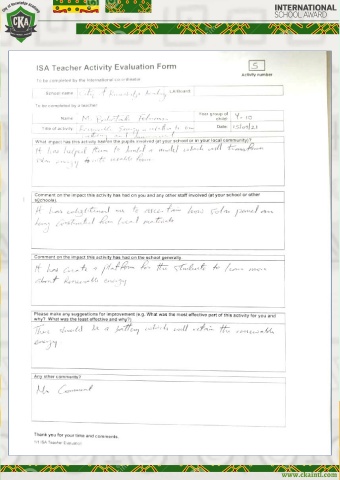 City of Knowledge Academy
CKA
INTERNATIONAL
SCHOOL AWARD
ISA Teacher Activity Evaluation Form
5
activity number
To be completed by the international co-ordinator
School name City of Knowledge Academy
To be completed by a teacher
Name M.
Year group of Y-10
Title of activity Renewable Energy in relation to our
Date
What impact has this activity had on the pupils involved at your school or in your local community?
It has helped them to build a model which will transform
the energy to its usable form
Comment on the impact this activity has had on you and any other staff involved (at your school or other
school(s).
It has enlightened me to ascertain how solar panel are
being constructed from local materials
Comment on the impact this activity has had on the school generally
It has create a platform for the students to learn more
about Renewable energy
Please make any suggestions for improvement (e.g. What was the most effective part of this activity for you and
why? What was the least effective and why?).
There should be a battery which will retain the renewable
energy
Any other comments?
No Comment
Thank you for your time and comments.
ISA Teacher Evaluation
www.ckaintl.com